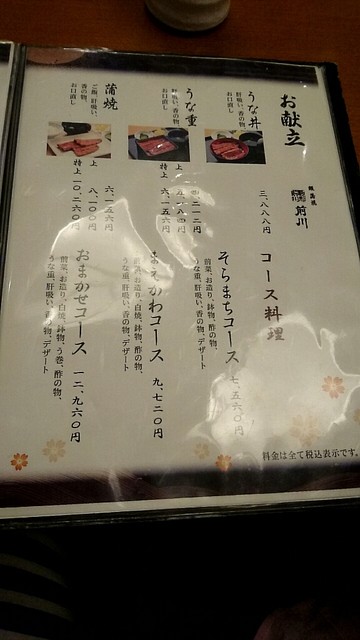 お献立
前川
うな丼
肝吸い、香の物、
お口直し
三、八八八円
うな重
肝吸い、香の物、
お口直し
上
特上 六、一五六円
蒲焼
ご飯、肝吸い、
香の物、
お口直し
六、一五六円
上 八、一〇〇円
特上 一〇、二六〇円
コース料理
そらまちコース 七、五六〇円
前菜、お造り、鉢物、酢の物、
うな重、肝吸い、香の物、デザート
まえかわコース 九、七二〇円
前菜、お造り、白焼、鉢物、酢の物、
うな重、肝吸い、香の物、デザート
おまかせコース 一二、九六〇円
前菜、お造り、白焼、鉢物、う巻、酢の物、
うな重、肝吸い、香の物、デザート
料金は全て税込表示です。